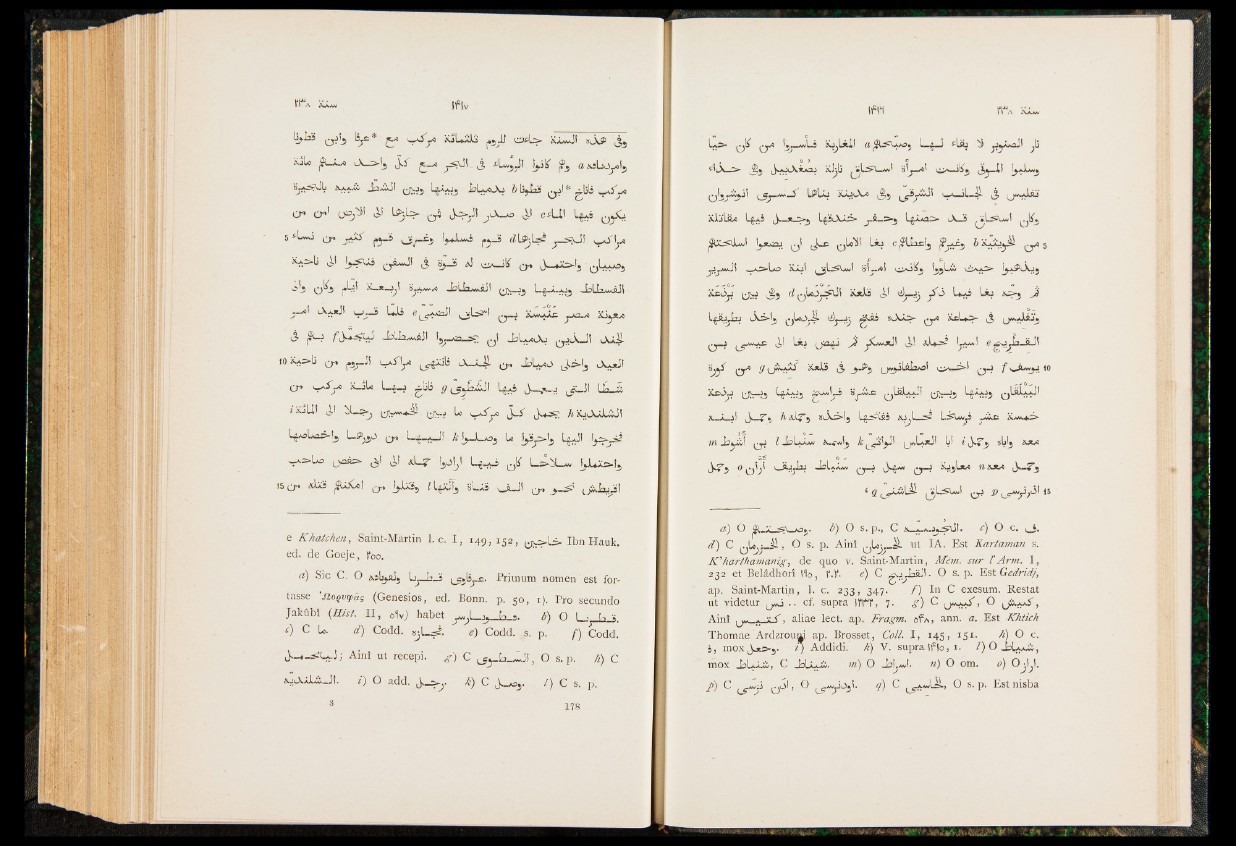 ١٤١٦ سنة ٢٣٨
نار الصنوبر لا بقاء لها وصبّحتهم a المغاربة فأسروا من كان حيّا
وسلبوا الموتى وكانت امرأة اسحاق نازلة بصُغْدَبيل وهي حذاء
تفليس في الجانب الشرقيّ وهي مدينة بناها كسرى انوشروان
وكان اسحاق قد حصّنها وحفر خندقها وجعل فيها مقاتلة
5 من الخويثيّة b وغيرهم واعطاهم c بغا الامان على ان يضعوا اسلحتهم
ويذهبوا حيث شاءوا وكانت امرأة اسحاق ابنة صاحب السرير
ثم وجّه بغا فيما ذكر زيرك الى قلعة الجَرْدَمان d وهي بين بَرْذَعة
وتفليس في جماعة من جنده ففتح زيرك الجردمان واخذ بطريقها
القِطْريج e اسيرا فحمله الى العسكر ثم نهض بغا الى عيسى بن
10 يوسف f بن اخت اصطفانوس وهو في قلعة كثيش g من كورة
البَيْلَقان وبينها وبين البيلقان عشرة فراسخ وبينها وبين برذعة
خمسة عشر فرسخا فحاربه ففتحها واخذه وحمله h وحمل ابنه
معه واباه وحمل i ابا العبّاس الواثى k واسمه سنباط l بن أَشُوط m
وحمل معه n معاوية بن سهل بن سنباط بطريق أَرّان o وحمل
15 آذرنرسى p بن اسحاق الخاشنى q ،
a) O وصبحتم. b) O s. p., C. c) O c. ف.
d) C, O s. p. Ainî ut IA. Est Kartaman s.
K'harthamaniġ, de quo v. Saint-Martin, Mém. sur l'Arm. I,
232 et Belâdhorî ١٩٥, ٢.٢. e) C القطريج. O s. p. Est Gedridj,
ap. Saint-Martin, l. c. 233, 347. f) In C exesum. Restat
ut videtur .. cf. supra, 7. g) C كبيس, O كبيش,
Ainî كتيس, aliae lect. ap. Fragm. ٥٤٨, ann. a. Est Khtich
Thomae Ardzrouni ap. Brosset, Coll. I, 145, 151. h) O c.
ف, mox وجعل. i) Addidi. k) V. supra, 1. l) O,
mox شنباط, C. m) O اسرط. n) O om. o) O اراز.
p) C اذرن نرسى, O. q) C, O s. p. Est nisba
١٤١٧ سنة ٢٣٨
وفى هذه السنة جاءت للروم ثلثمائة مركب مع *عرفا وابن قطونا
وامردناقه a وهم كانوا الرؤساء فى البحر مع كلّ واحد منهم مائة
مركب فاناخ *ابن قطونا b بدمياط وبينها وبين الشطّ شبيه بالبحيرة
يكون فيها الماء c الى صدر الرجل فمن جازها الى الارض امن من
5 مراكب البحر فجازها d قوم فسلموا وغرق قوم كثير من نساء
وصبيان واحتمل من كانت له قوّة فى السفن فنجوا الى ناحية
الفسطاط وبينها وبين الفسطاط مسيرة اربعة ايّام وكان والى
معونة مصر عَنْبَسة بن اسحاق الضبّىّ e فلمّا قرب العيد امر
الجند الذين بدمياط ان يحضروا الفسطاط ليتجمّل f بهم فى
10 العيد واخلى دمياط من الجند فانتهى مراكب الروم من ناحية
شَطا التى يعمل فيها الشَّطَوىّ g فاناخ بها مائة مركب من
الشلنديّة h يحمل كلّ مركب ما بين الخمسين رجلا الى المائة i
فخرجوا اليها واحرقوا ما وصلوا k اليه من دورها واخصاصها
واحتملوا سلاحا كان فيها ارادوا حمله الى ابى حفص صاحب
15 اقريطش نحو من الف قناة وآلتها l وقتلوا من امكنهم قتله من
e Khatchen, Saint-Martin l. c. I, 149, 152, خاجين Ibn Hauk.
ed. de Goeje, ٢٥٥.
a) Sic C. O. Primum nomen est for-
tasse (Genesios, ed. Bonn. p. 50, 1). Pro secundo
Jakûbî (Hist. II, ٥٩٧) habet. b) O قطربا.
c) C ما. d) Codd. تجازه. e) Codd. s. p. f) Codd.
; Ainî ut recepi. g) C, O s. p. h) C
الشلندية. i) O add. رجل. k) C وصل. l) C s. p.
3 178